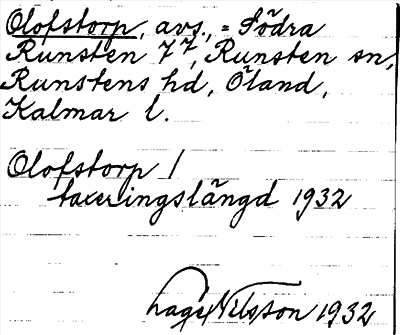 Olofstorp, avs., = Södra
Runsten 7⁷, Runsten sn,
Runstens hd, Öland,
Kalmar l.
Olofstorp /
taxeringslängd 1932
Lage Nilsson 1932